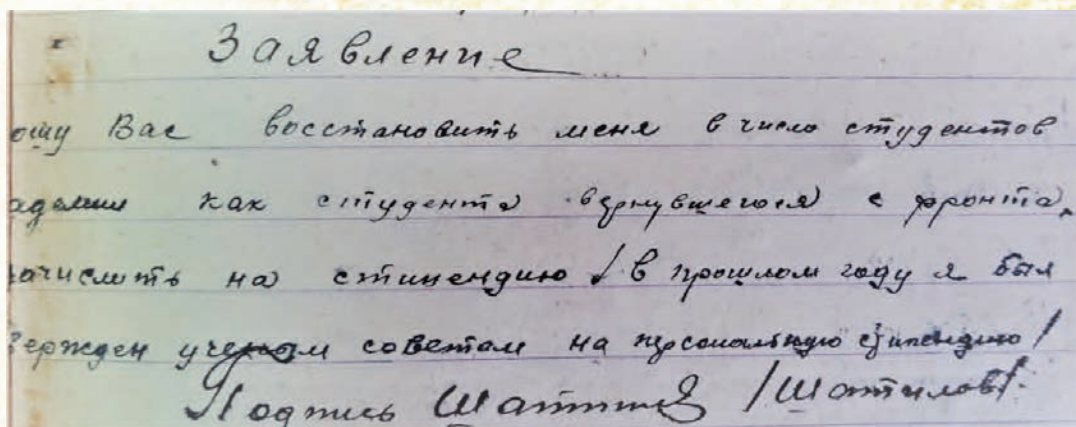 Заявление
ошу Вас восстановить меня в число студентов
адемии как студента вернувшегося с фронта,
зачислить на стипендию / в прошлом году я был
вержден ученом советам на персональную стипендию /
Подпись Шатилов /Шатилов/.